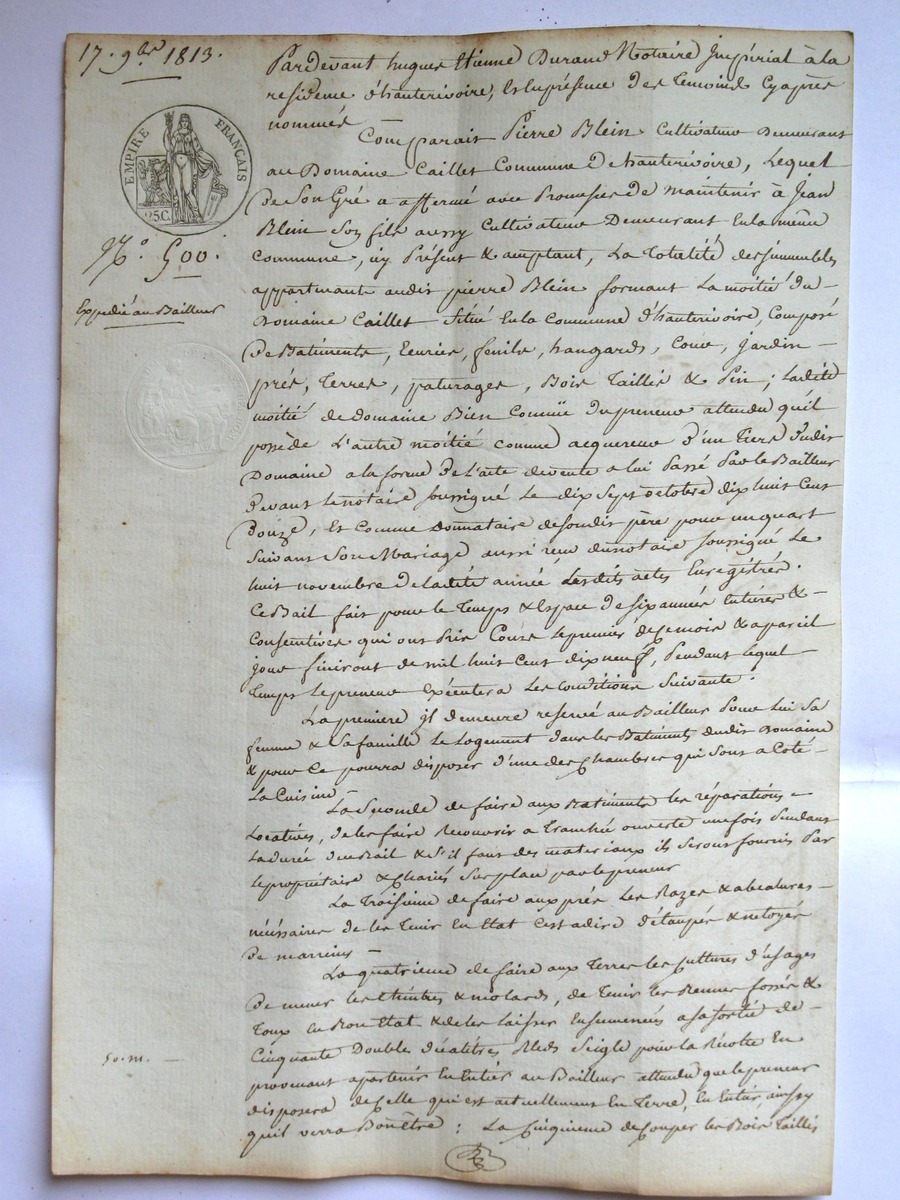 17. 9bre 1813.
EMPIRE FRANÇAIS
25C.
N.° 500.
Expedié au Bailleur
Pardevant hugues Etienne Durand Notaire Impérial à la
residence d'hauterivoire, En la présence des Temoins Cyaprès
nommés
Comparait Pierre Blein Cultivateur Demeurant
au Domaine Caillet Commune D'hauterivoire, Lequel
De Son Gré a affermé avec Promesses de maintenir à Jean
Blein Son fils aussy Cultivateur Demeurant En la même
Commune, icy Présent & acceptant, La Totalité des immeubles
appartenants audit pierre Blein formant La moitié du
Domaine Caillet Situé En la Commune d'hauterivoire, Composé
De Batiments, Ecuries, fenils, hangards, Cour, Jardin
prés, Terres, paturages, Bois Taillis & Pin; Ladite
moitié de Domaine Bien Connüe du preneur attendu qu'il
possède L'autre moitié comme acquereur D'un Tiers Dudit
Domaine a la forme De L'acte de vente a lui Passé Par le Bailleur
Devant Le notaire soussigné Le dix Sept octobre dix huit Cent
Douze, Et Comme Donnataire de Sondit père pour un quart
Suivant Son Mariage aussi reçu du notaire Soussigné Le
huit novembre De ladite année Lesdits actes Enregistrés.
Ce Bail fait pour le Temps & Espace de Six années Entières &
Consecutives qui ont Pris Cours Le premier de Ce mois & a pareil
jour finiront de mil huit Cent dix neuf, Pendant Lequel
Temps Le preneur Exécutera Les Conditions Suivante.
La première il demeure reservé au Bailleur Pour Lui Sa
femme & Sa famille Le Logement dans les Batiments dudit Domaine
& pour Ce pourra disposer d'une des Chambres qui Sont a Coté
La Cuisine
La Seconde de faire aux Batiments les réparations
Locatives, de les faire Recouvrir a Tranchée ouverte une fois Pendant
La durée du Bail & S'il faut des materiaux ils Seront fournis Par
Le propriétaire & Chariés Sur place par le preneur
La Troisieme de faire aux prés Les Razes &
nécéssaires de les Tenir En Etat C'est adire d'étaupés & netoyés
De
La quatrieme de faire aux Terres les Cultures d'usages
De mener les & molards, de Tenir les fossés &
Toux En Bon Etat & de les Laisser Ensemencés a sa sortie de
Cinquante Double décalitres Bleds Seigle pour la Récolte En
provenant apartenir En Entier au Bailleur attendu que le preneur
disposera de Celle qui est actuellement En Terre, En Entier ainsy
quil verra Bon Être : La Cinquieme de Couper les Bois Taillis